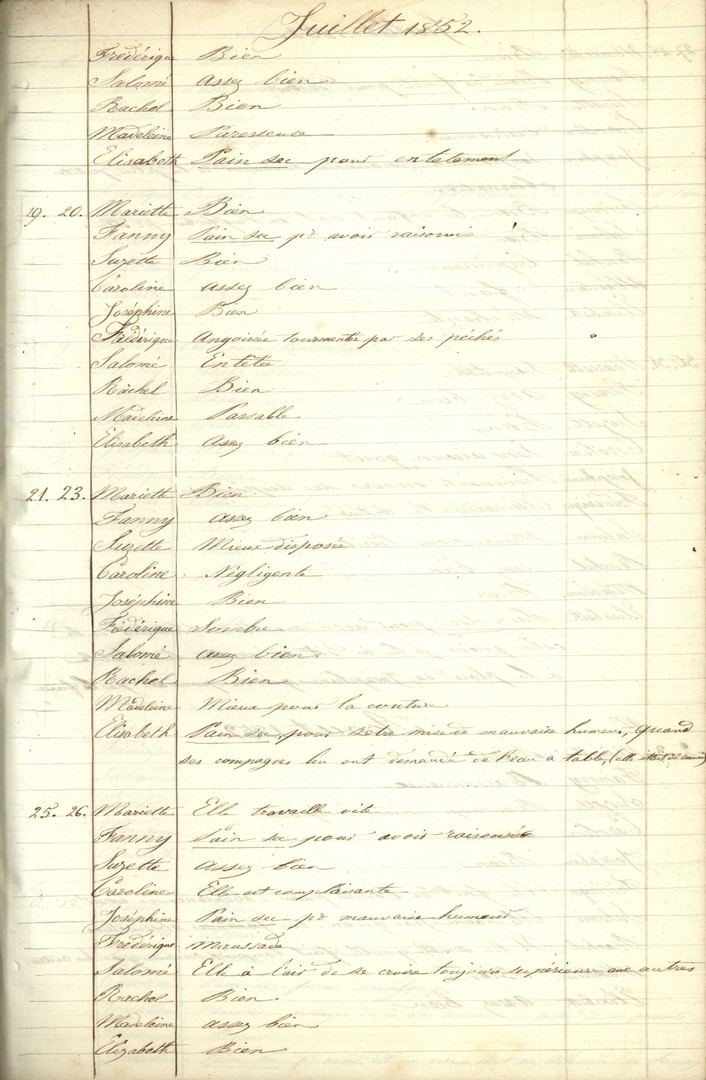 Juillet 1852.
Frédérique Bien
Salomé assez bien
Rachel Bien
Madeleine Paresseuse
Elisabeth Pain sec pour entetement
19. 20. Mariette Bien
Fanny Pain sec pr avoir raisonné
Suzette Bien
Caroline assez bien
Joséphine Bien
Frédérique Angoissée tourmentée par ses péchés
Salomé Entetée
Rachel Bien
Madeleine Passable
Elisabeth assez bien
21. 23. Mariette Bien
Fanny assez bien
Suzette Mieux disposée
Caroline Négligente
Joséphine Bien
Frédérique Sombre
Salomé assez bien
Rachel Bien
Madeleine Mieux pour la couture
Elisabeth Pain sec, pour s'etre mise de mauvaise humeur, quand
ses compagnes lui ont demandé de l'eau a table, (elle était de
25. 26. Mariette Elle travaille vite
Fanny Pain sec pour avoir raisonnée
Suzette assez bien
Caroline Elle est complaisante
Joséphine Pain sec pr mauvaise humeur
Frédérique Maussade
Salomé Elle à l'air de se croire toujours supérieure aux autres
Rachel Bien
Madeleine assez bien
Elizabeth Bien